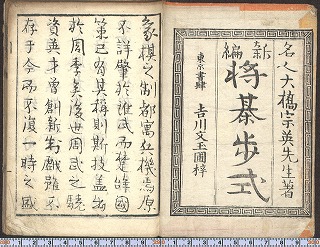 名人大橋宗英先生著
新編
将棊歩式
東京書肆 吉川文玉圃梓
象棋之制都寓兵機焉原
不詳肇於誰氏而楚辞國
策已有其稱則斯技蓋出
於周季矣後世周武之競
資英才曽創新制戯雖不
存于今而不復一時之國